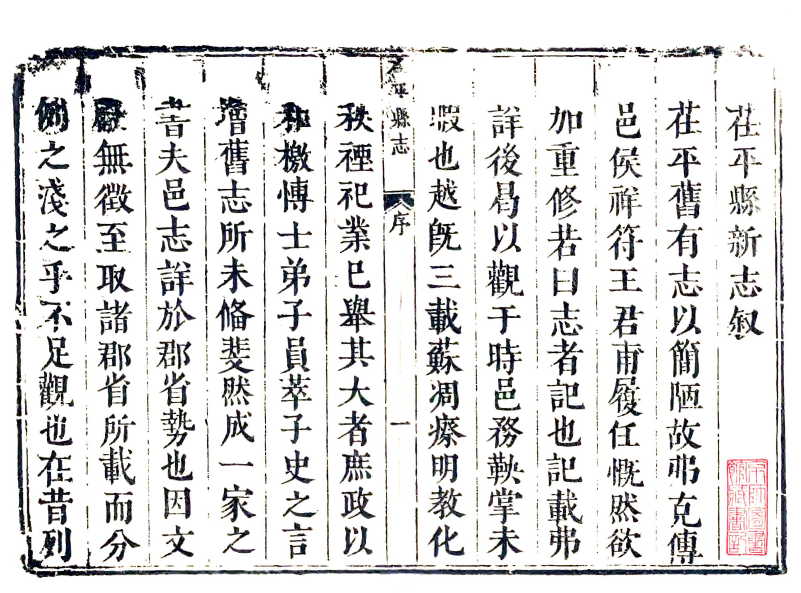 茌平縣新志叙
茌平舊有志以簡陋故弗克傳
邑侯祥符王君甫履任慨然欲
加重修若曰志者記也記載弗
詳後曷以觀于時邑務鞅掌未
暇也越旣三載蘇凋瘵明教化
平縣志
序
一
秩禋祀業已舉其大者庶政以
和檄博士弟子員萃子史之言
增舊志所未備斐然成一家之
書夫邑志詳於郡省勢也因文
獻無徵至取諸郡省所載而分
例之淺之乎不足觀也在昔列